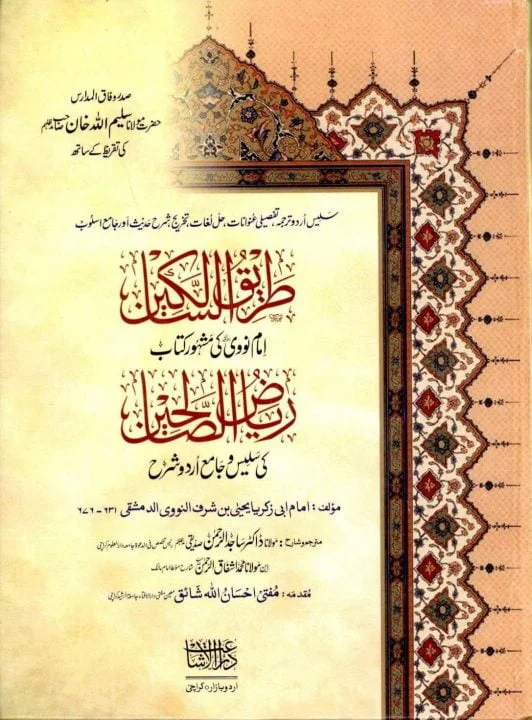 صدر وفاق المدارس
حضرت مولانا سلیم اللہ خان صاحب
کی تقریظ کے ساتھ
سلیس اُردو ترجمہ، تفصیلی عنوانات، حل لغات، تخریج، شرح حدیث اور جامع اسلوب
طریق السالکین
امام نووی کی مشہور کتاب
ریاض الصالحین
کی سلیس و جامع اُردو شرح
مؤلف : امام ابی زکریا یحییٰ بن شرف النووی الدمشقی ۶۳۱ - ۶۷۶
مترجم و شارح : مولانا ڈاکٹر ساجد الرحمٰن صدیقی
ابن مولانا محمد اشفاق الرحمٰن شارح مؤطا امام مالک
مقدمہ : مفتی احسان اللہ شائق معین مفتی دارالافتاء جامعۃ الرشید کراچی
دارالاشاعت
اردو بازار، کراچی